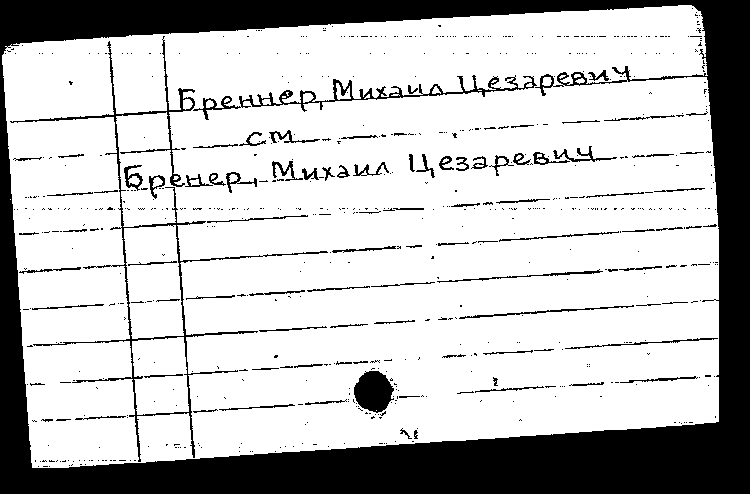 Бреннер, Михаил Цезаревич
см
Бренер, Михаил Цезаревич